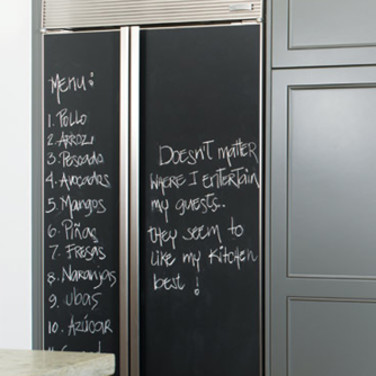 Menu:
1. Pollo
2. Arroz
3. Pescado
4. Avocados
5. Mangos
6. Piñas
7. Fresas
8. Naranjas
9. Ubas
10. Azúcar
Doesn't matter
where I entertain
my guests..
they seem to
like my kitchen
best!